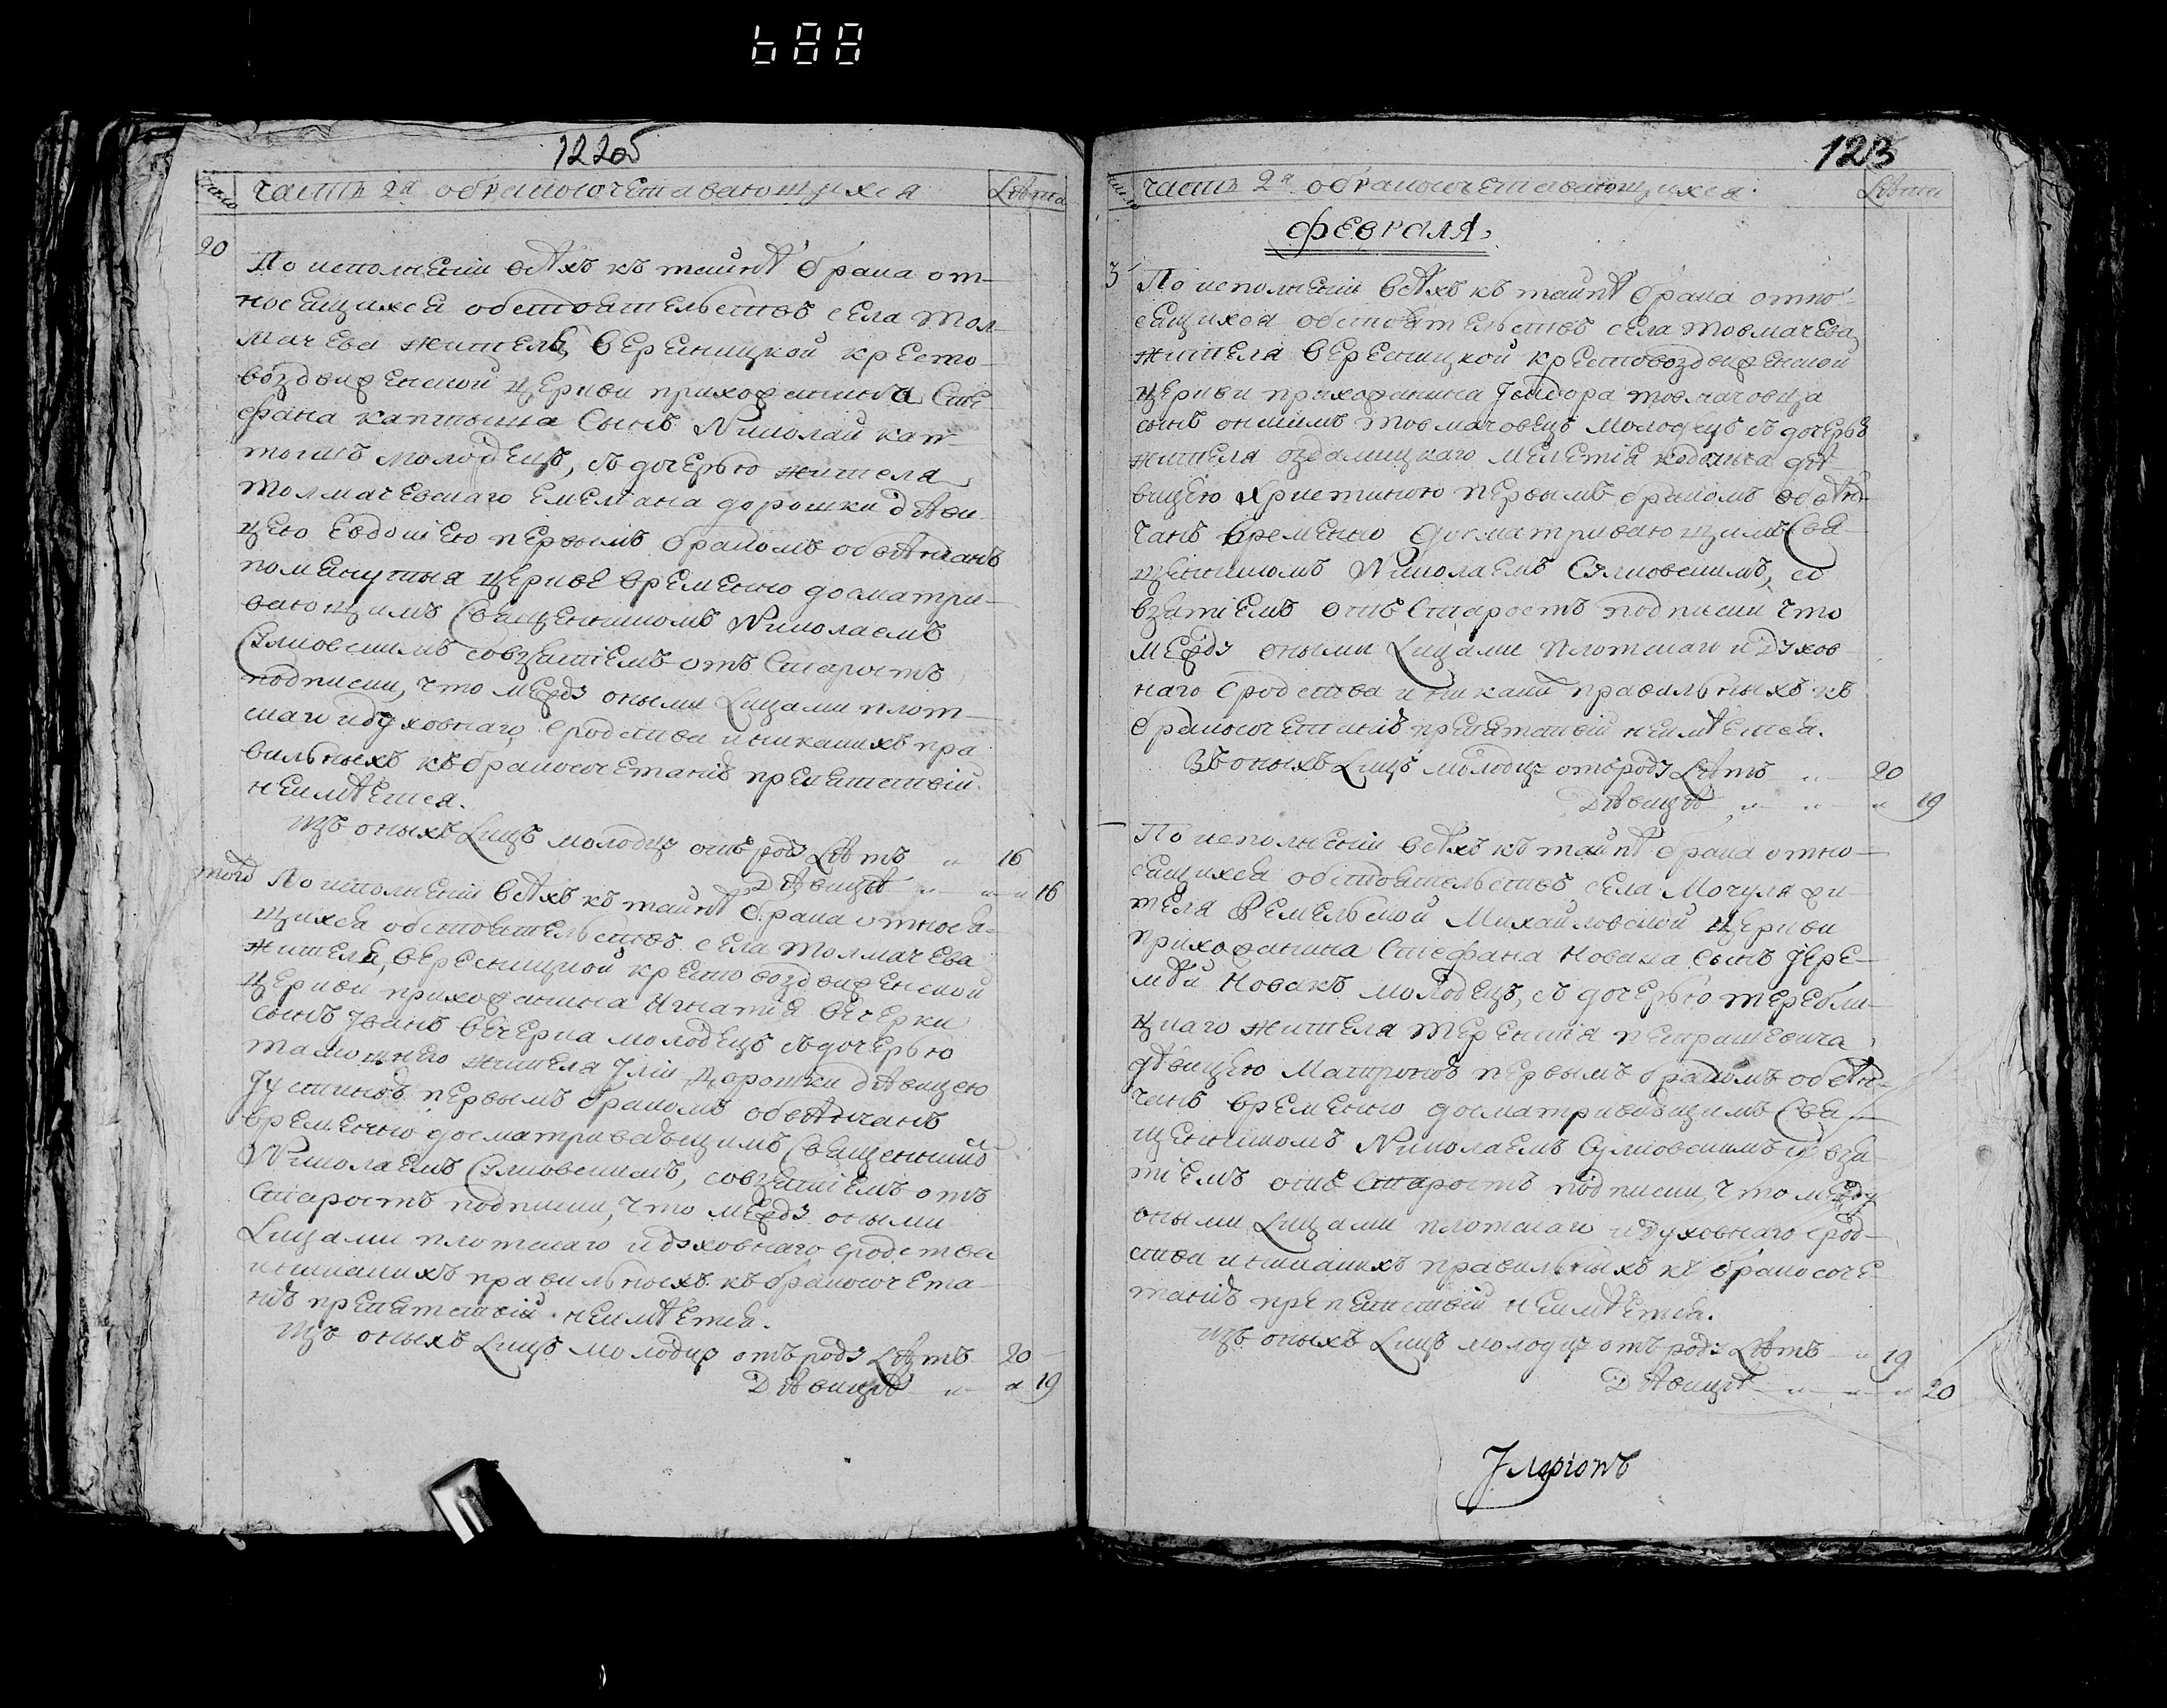 122об
число
часть 2я о бракосочетавающихся
Лѣта
20
По исполненіи всѣхъ къ тайнѣ брака от-
носящихся обстоятельствъ села Тол-
мачева жителя, Вересницкой кресто-
воздвиженской церкви прихожанина Сте
фана каптюга Сынъ Николай кап
тюгъ молодецъ, съ дочерью жителя
Толмачевскаго Емеліана дорошки дѣви
цею Евдокіею первымъ бракомъ обвѣнчанъ
помянутыя церкве временно досматри-
вающимъ Священникомъ Николаемъ
Сулковскимъ совзятіемъ отъ Старостъ
подписки, что между оными Лицами плот-
скаго идуховнаго сродства иникакихъ пра
вильныхъ къбракосочетанію препятствій
неимѣется.
Изъ оныхъ Лицъ молодцу отъ роду Лѣтъ „ 16
Дѣвицѣ „ „ „ 16
того
По исполненіи всѣхъ къ тайнѣ брака относя-
щихся обстоятельствъ села Толмачева
жителя, Вересницкой крестовоздвиженской
церкви прихожанина Игнатія вечерки
сынъ Іванъ вечерка молодецъ съдочерью
тамошнего жителя Іліи Дорошки дѣвицею
Іустиною первымъ бракомъ обвѣнчанъ
временно досматривающимъ Священнико
Николаемъ Сулковскимъ, совзятіемъ отъ
Старостъ подписки, что между оными
Лицами плотскаго идуховнаго сродства
иникакихъ правильныхъ къ бракосочета-
нію препятствій неимѣется.
Изъ оныхъ Лицъ молодцу отъ роду Лѣтъ 20
Дѣвицѣ „ „ 19
123
число
часть 2я о бракосочетавающихся
Лѣта
Февраля
3
По исполненіи всѣхъ къ тайнѣ брака отно-
сящихся обстоятельствъ села Товмачева
жителя Вересницкой крестовоздвиженской
церкви прихожанина Ісидора товмачовца
сынъ онисимъ Товмачовецъ молодецъ съ дочерью
жителя оздамицкаго Мелетія кодолыча дѣ-
вицею Христиною первымъ бракомъ обвѣн-
чанъ временно Досматривающимъ Свя-
щенникомъ Николаемъ Сулковскимъ, со
взятіемъ отъ Старостъ подписки что
между оными Лицами Плотскаго и Духов-
наго Сродства иникаки правильныхъ къ
бракосочетанію препятствій неимѣется.
Въ оныхъ Лицъ молодцу отъроду Лѣтъ „ 20
Дѣвицѣ „ „ „ 19
По исполненіи всѣхъ къ тайнѣ брака отно-
сящихся обстоятельствъ села Мочуля жи-
теля Ремельской Михайловской церкви
прихожанина Стефана Новака сынъ Іере-
мѣй Новакъ молодецъ, съ дочерью теребли-
цкаго жителя Терентія петрашевича
дѣвицею Матроною первымъ бракомъ обвѣн-
чанъ временно досматривающимъ Свя-
щенникомъ Николаемъ Сулковскимъ со взя-
тіемъ отъ Старостъ подписки, что между
оными Лицами плотскаго идуховнаго срод-
ства иникакихъ правильныхъ къ бракосоче-
танію препятствій неимѣется.
Изъ оныхъ Лицъ молодцу отъ роду Лѣтъ „ 19
Дѣвицѣ „ „ „ 20
Іларіонъ